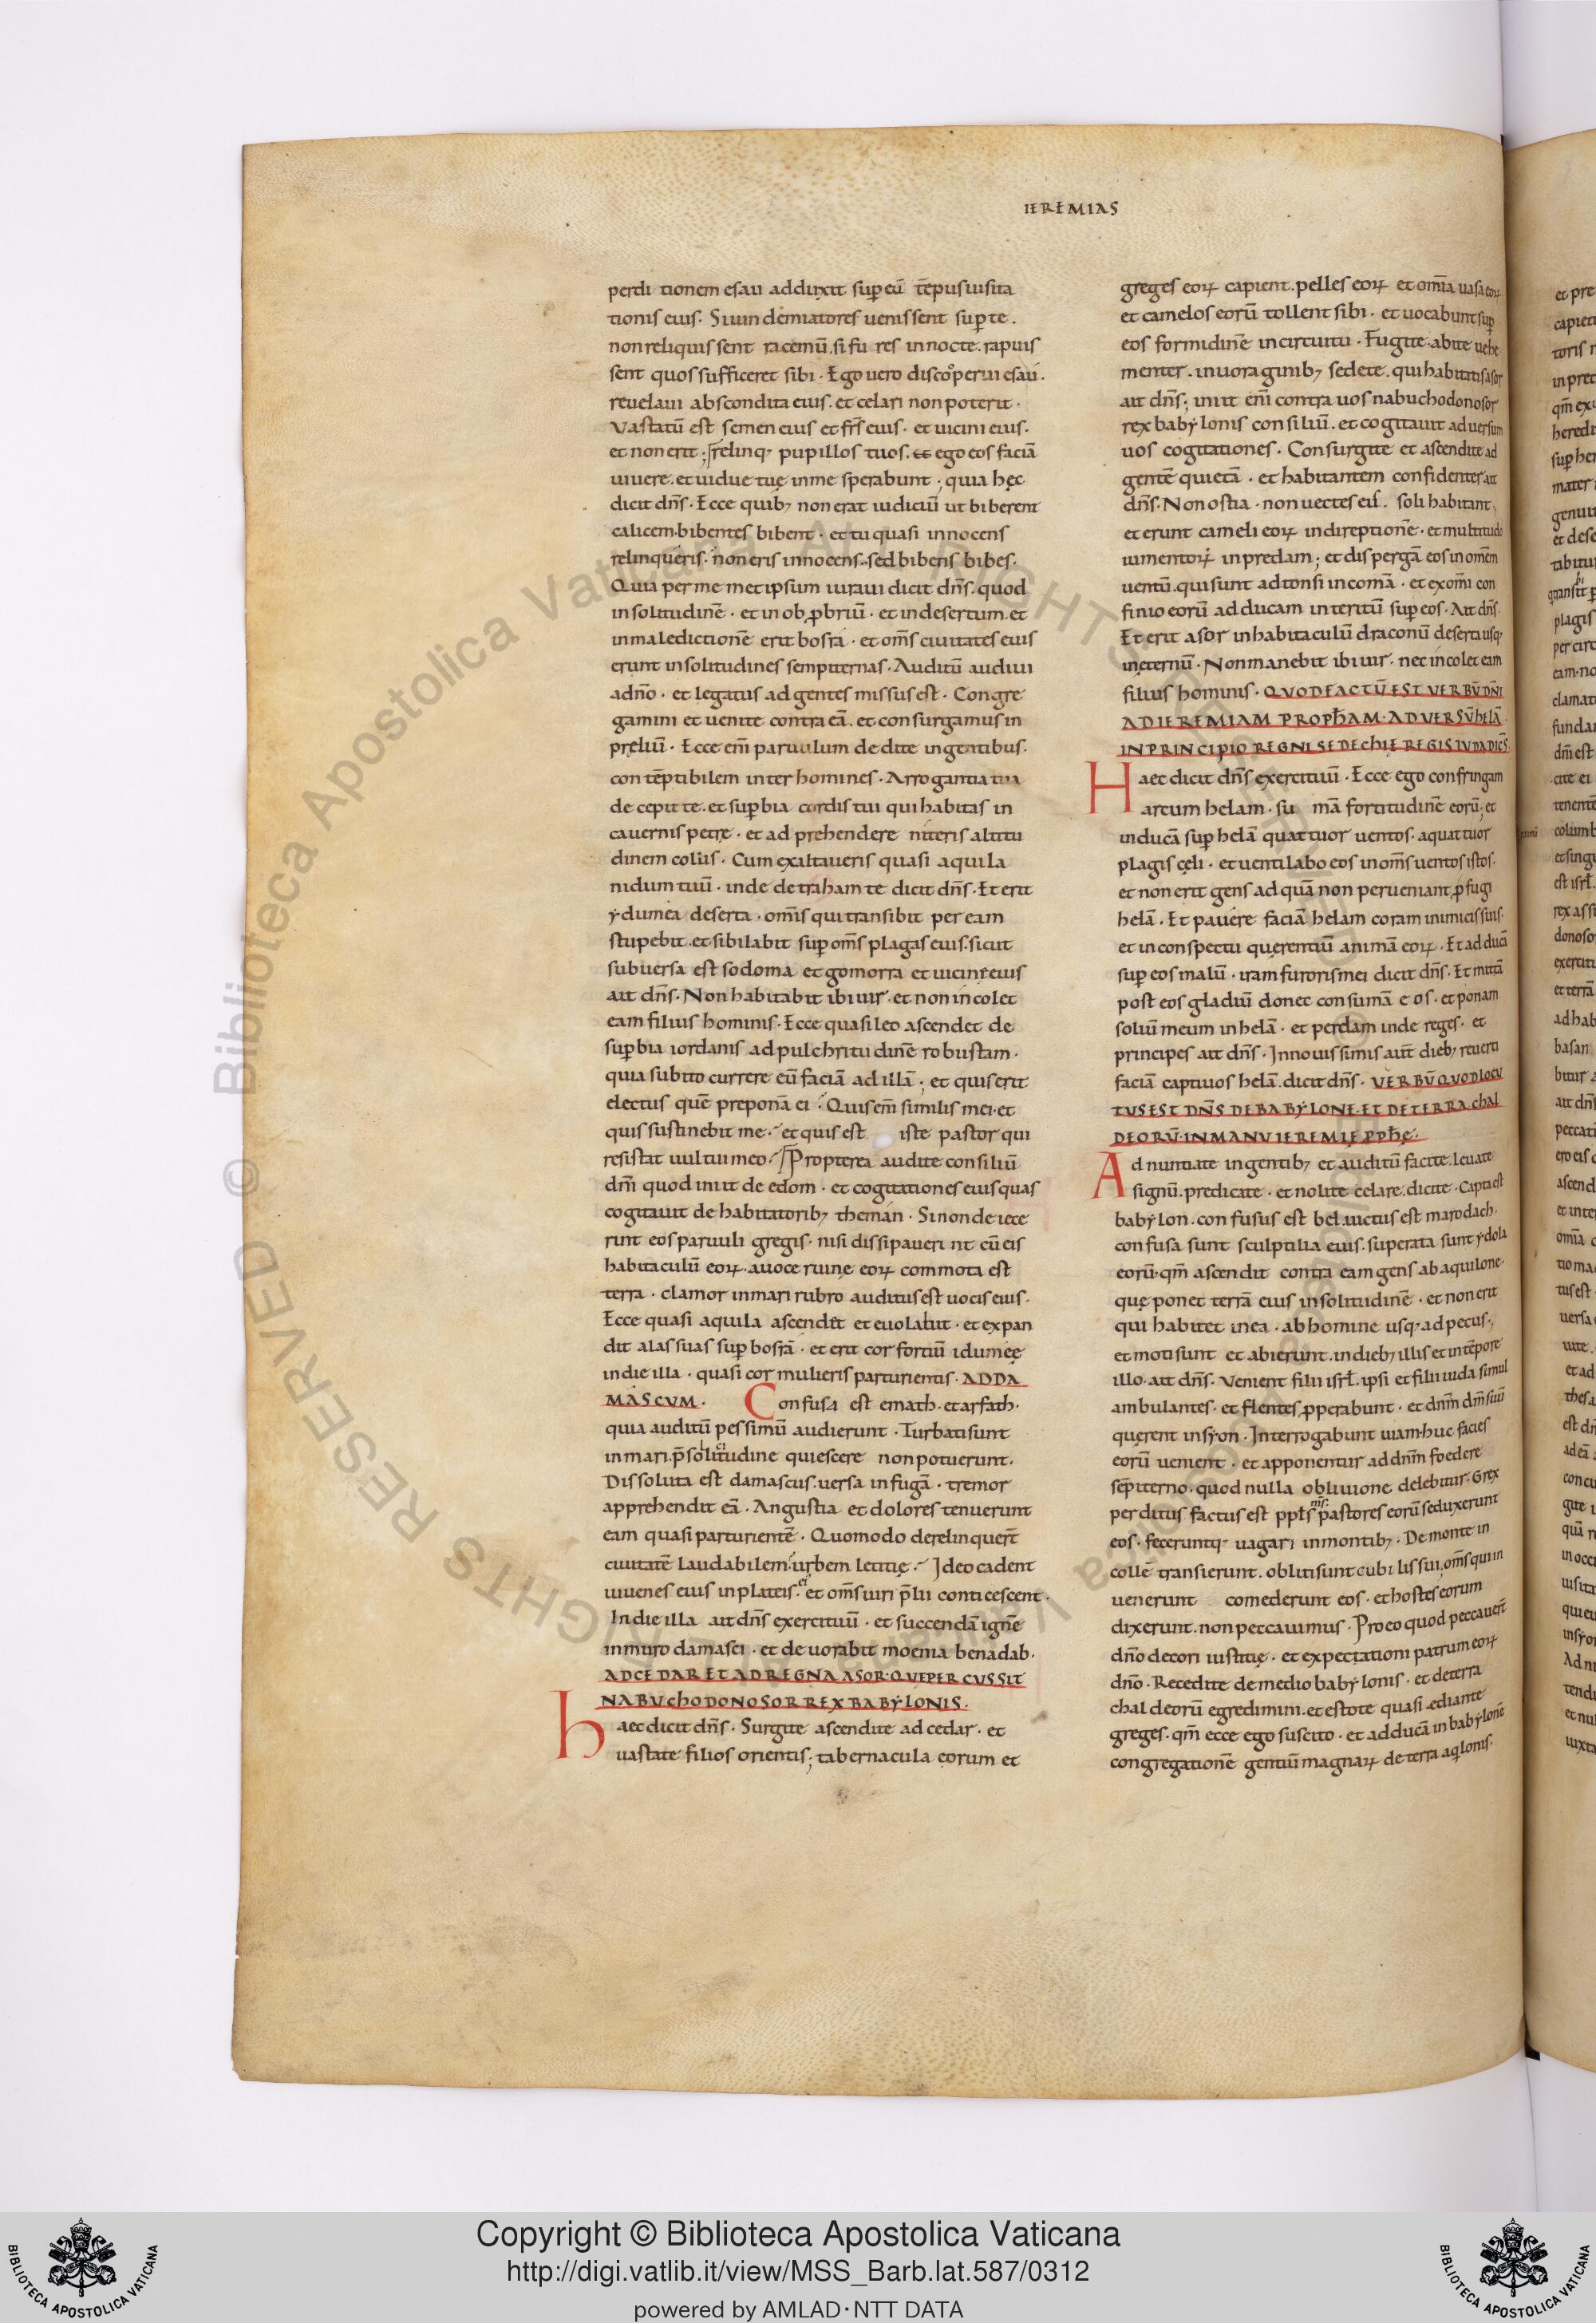 IEREMIAS
perditionem esau adduxit sup eū tēpus uisita
tionis eius. Si uindemiatores uenissent sup te.
non reliquissent racemū. si fures in nocte. rapuis
sent quos sufficeret sibi. Ego uero discooperui esau.
reuelaui abscondita eius. et celari non poterit.
Vastatū est semen eius et frs̄ eius. et uicini eius.
et non erit; relinq; pupillos tuos. ego eos faciā
uiuere. et uidue tuę in me sperabunt; quia hęc
dicit dn̄s. Ecce quib; non erat iudiciū ut biberent
calicem. bibentes bibent. et tu quasi innocens
relinqueris. non eris innocens. sed bibens bibes.
Quia per me met ipsum iuraui dicit dn̄s. quod
in solitudinē. et in obprobriū. et in desertum. et
in maledictionē erit bosra. et oms̄ ciuitates eius
erunt in solitudines sempiternas. Auditū audiui
a dn̄o. et legatus ad gentes missus est. Congre
gamini et uenite contra eā. et consurgamus in
pręliū. Ecce em̄ paruulum dedite in gentibus.
contēptibilem inter homines. Arrogantia tua
decepit te. et supbia cordis tui qui habitas in
cauernis petrę. et adprehendere niteris altitu
dinem collis. Cum exaltaueris quasi aquila
nidum tuū. inde detraham te dicit dn̄s. Et erit
ydumea deserta. omīs qui transibit per eam
stupebit. et sibilabit sup oms̄ plagas eius. sicut
subuersa est sodoma et gomorra et uicinę eius
ait dn̄s. Non habitabit ibi uir. et non incolet
eam filius hominis. Ecce quasi leo ascendet de
supbia iordanis ad pulchritudinē robustam.
quia subito currere eū faciā ad illā; et quis erit
electus quē preponā ei. Quis em̄ similis mei. et
quis sustinebit me. et quis est iste pastor qui
resistat uultui meo. Propterea audite consiliū
dn̄i quod iniit de edom. et cogitationes eius quas
cogitauit de habitatorib; theman. Si non deiece
rint eos paruuli gregis. nisi dissipauerint cū eis
habitaculū eoꝝ. a uoce ruinę eoꝝ commota est
terra. clamor in mari rubro auditus est uocis eius.
Ecce quasi aquila ascendet et euolabit. et expan
dit alas suas sup bosrā. et erit cor fortiū idumęę
in die illa. quasi cor mulieris parturientis. AD DA
MASCVM. Confusa est emath. et arfath.
quia auditū pessimū audierunt. Turbati sunt
in mari. p̄ sollicitudine quiescere non potuerunt.
Dissoluta est damascus. uersa in fugā. tremor
apprehendit eā. Angustia et dolores tenuerunt
eam quasi parturientē. Quomodo derelinquer̄t
ciuitatē laudabilem. urbem letitię. Ideo cadent
iuuenes eius in plateis. et oms̄ uiri p̄lii conticescent.
In die illa ait dn̄s exercituū. et succendā ignē
in muro damasci. et deuorabit moenia benadab.
AD CEDAR ET AD REGNA ASOR. QVE PERCVSSIT
NABVCHODONOSOR REX BABYLONIS.
haec dicit dn̄s. Surgite ascendite ad cedar. et
uastate filios orientis; tabernacula eorum et
greges eoꝝ capient. pelles eoꝝ et om̄ia uasa eoꝝ
et camelos eorū tollent sibi. et uocabunt sup
eos formidinē in circuitu. Fugite. abite uehe
menter. in uoraginib; sedete. qui habitatis asor
ait dn̄s; iniit em̄ contra uos nabuchodonosor
rex babylonis consiliū. et cogitauit aduersum
uos cogitationes. Consurgite et ascendite ad
gentē quietā. et habitantem confidenter ait
dn̄s. Non ostia. non uectes eis. soli habitant;
et erunt cameli eoꝝ in direptionē. et multitudo
iumentoꝝ in predam; et dispergā eos in omem
uentū. qui sunt adtonsi in comā. et ex om̄i con
finio eorū adducam interitū sup eos. Ait dn̄s.
Et erit asor in habitaculū draconū deserta usq;
in ęternū. Non manebit ibi uir. nec incolet eam
filius hominis. QVOD FACTŪ EST VERBŪ DN̄I
AD IEREMIAM PROPHAM. ADVERSV̄ hELĀ.
IN PRINCIPIO REGNI SEDEChIĘ REGIS IVDA DICS̄
Haec dicit dn̄s exercituū. Ecce ego confringam
arcum helam. su mā fortitudinē eorū; et
inducā sup helā quattuor uentos. a quattuor
plagis cęli. et uentilabo eos in oms̄ uentos istos.
et non erit gens ad quā non perueniant pfugi
helā. Et pauere faciā helam coram inimicis suis.
et in conspectu querentiū animā eoꝝ. Et adducā
sup eos malū. iram furoris mei dicit dn̄s. Et mittā
post eos gladiū donec consumā eos. et ponam
soliū meum in helā. et perdam inde reges. et
principes ait dn̄s. In nouissimis aut̄ dieb; reuerti
faciā captiuos helā. dicit dn̄s. VERBŪ QVOD LOCV
TVS EST DN̄S DE BABYLONE. ET DE TERRA Chal
DEORŪ. IN MANV IEREMIĘ PPhĘ.
Adnuntiate in gentib; et auditū facite. leuate
signū. predicate. et nolite celare. dicite. Capta est
babylon. confusus est bel. uictus est marodach.
confusa sunt sculptilia eius. superata sunt ydola
eorū. qm̄ ascendit contra eam gens ab aquilone.
quę ponet terrā eius in solitudinē. et non erit
qui habitet in ea. ab homine usq; ad pecus;
et moti sunt et abierunt. in dieb; illis et in tēpore
illo. ait dn̄s. Venient filii isrl̄. ipsi et filii iuda simul
ambulantes. et flentes pperabunt. et dnm̄ dm̄ suū
querent in syon. Interrogabunt uiam. huc facies
eorū uenient. et apponentur ad dnm̄ foedere
sēpiterno. quod nulla obliuione delebitur. Grex
perditus factus est ppl̄s m̄s. pastores eorū seduxerunt
eos. feceruntq; uagari in montib;. De monte in
collē transierunt. obliti sunt cubilis sui. oms̄ qui in
uenerunt comederunt eos. et hostes eorum
dixerunt. non peccauimus. Pro eo quod peccauer̄t
dn̄o decori iustitię. et expectationi patrum eoꝝ
dn̄o. Recedite de medio babylonis. et de terra
chaldeorū egredimini. et estote quasi ędi ante
greges. qm̄ ecce ego suscito. et adducā in babylonē
congregationē gentiū magnaꝝ de terra aqlonis.
Copyright © Biblioteca Apostolica Vaticana
http://digi.vatlib.it/view/MSS_Barb.lat.587/0312
powered by AMLAD·NTT DATA